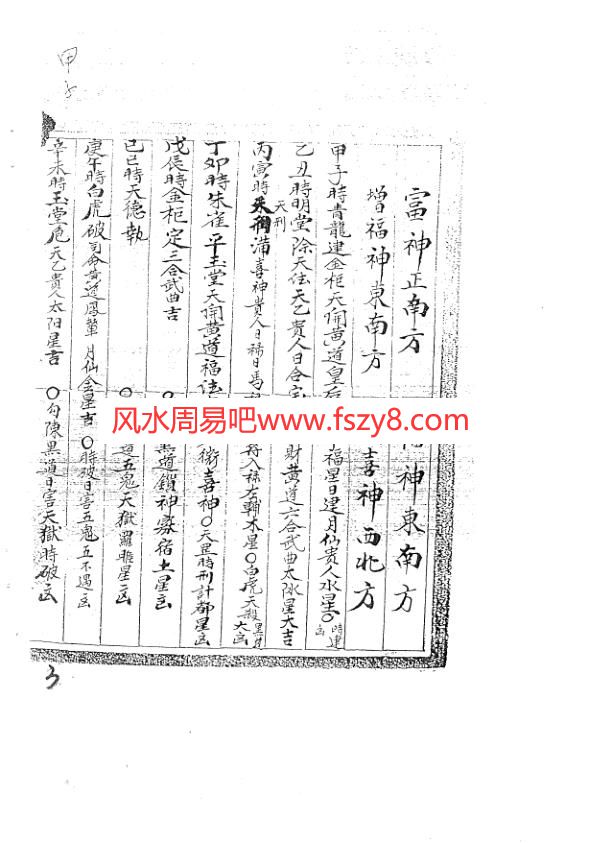 甲子
富神正南方
神東南方
增福神東南方
喜神西北方
甲子時青龍建金柜天開黄道皇后
福星日建月仙貴人水星〇時建凶
乙丑時明堂除天佉天乙貴人日合
財黄道六合武曲太陰星大吉
丙寅時天刑滿喜神貴人日禄日馬
天刑
再入禄左輔木星〇白虎天殺黑道大凶
丁卯時朱雀平玉堂天開黄道福
喜神〇天罡時刑計都星凶
戊辰時金柜定三合武曲吉
黑道鎖神寡宿土星凶
已巳時天德執
道五鬼天獄羅睺星凶
庚午時白虎破司命黄道鳳輦月仙金星吉〇時破日害五鬼五不遇凶
辛未時玉堂危天乙貴人太阳星吉〇勾陳黑道日害天獄時破凶
风水周易吧www.fszy8.com
3